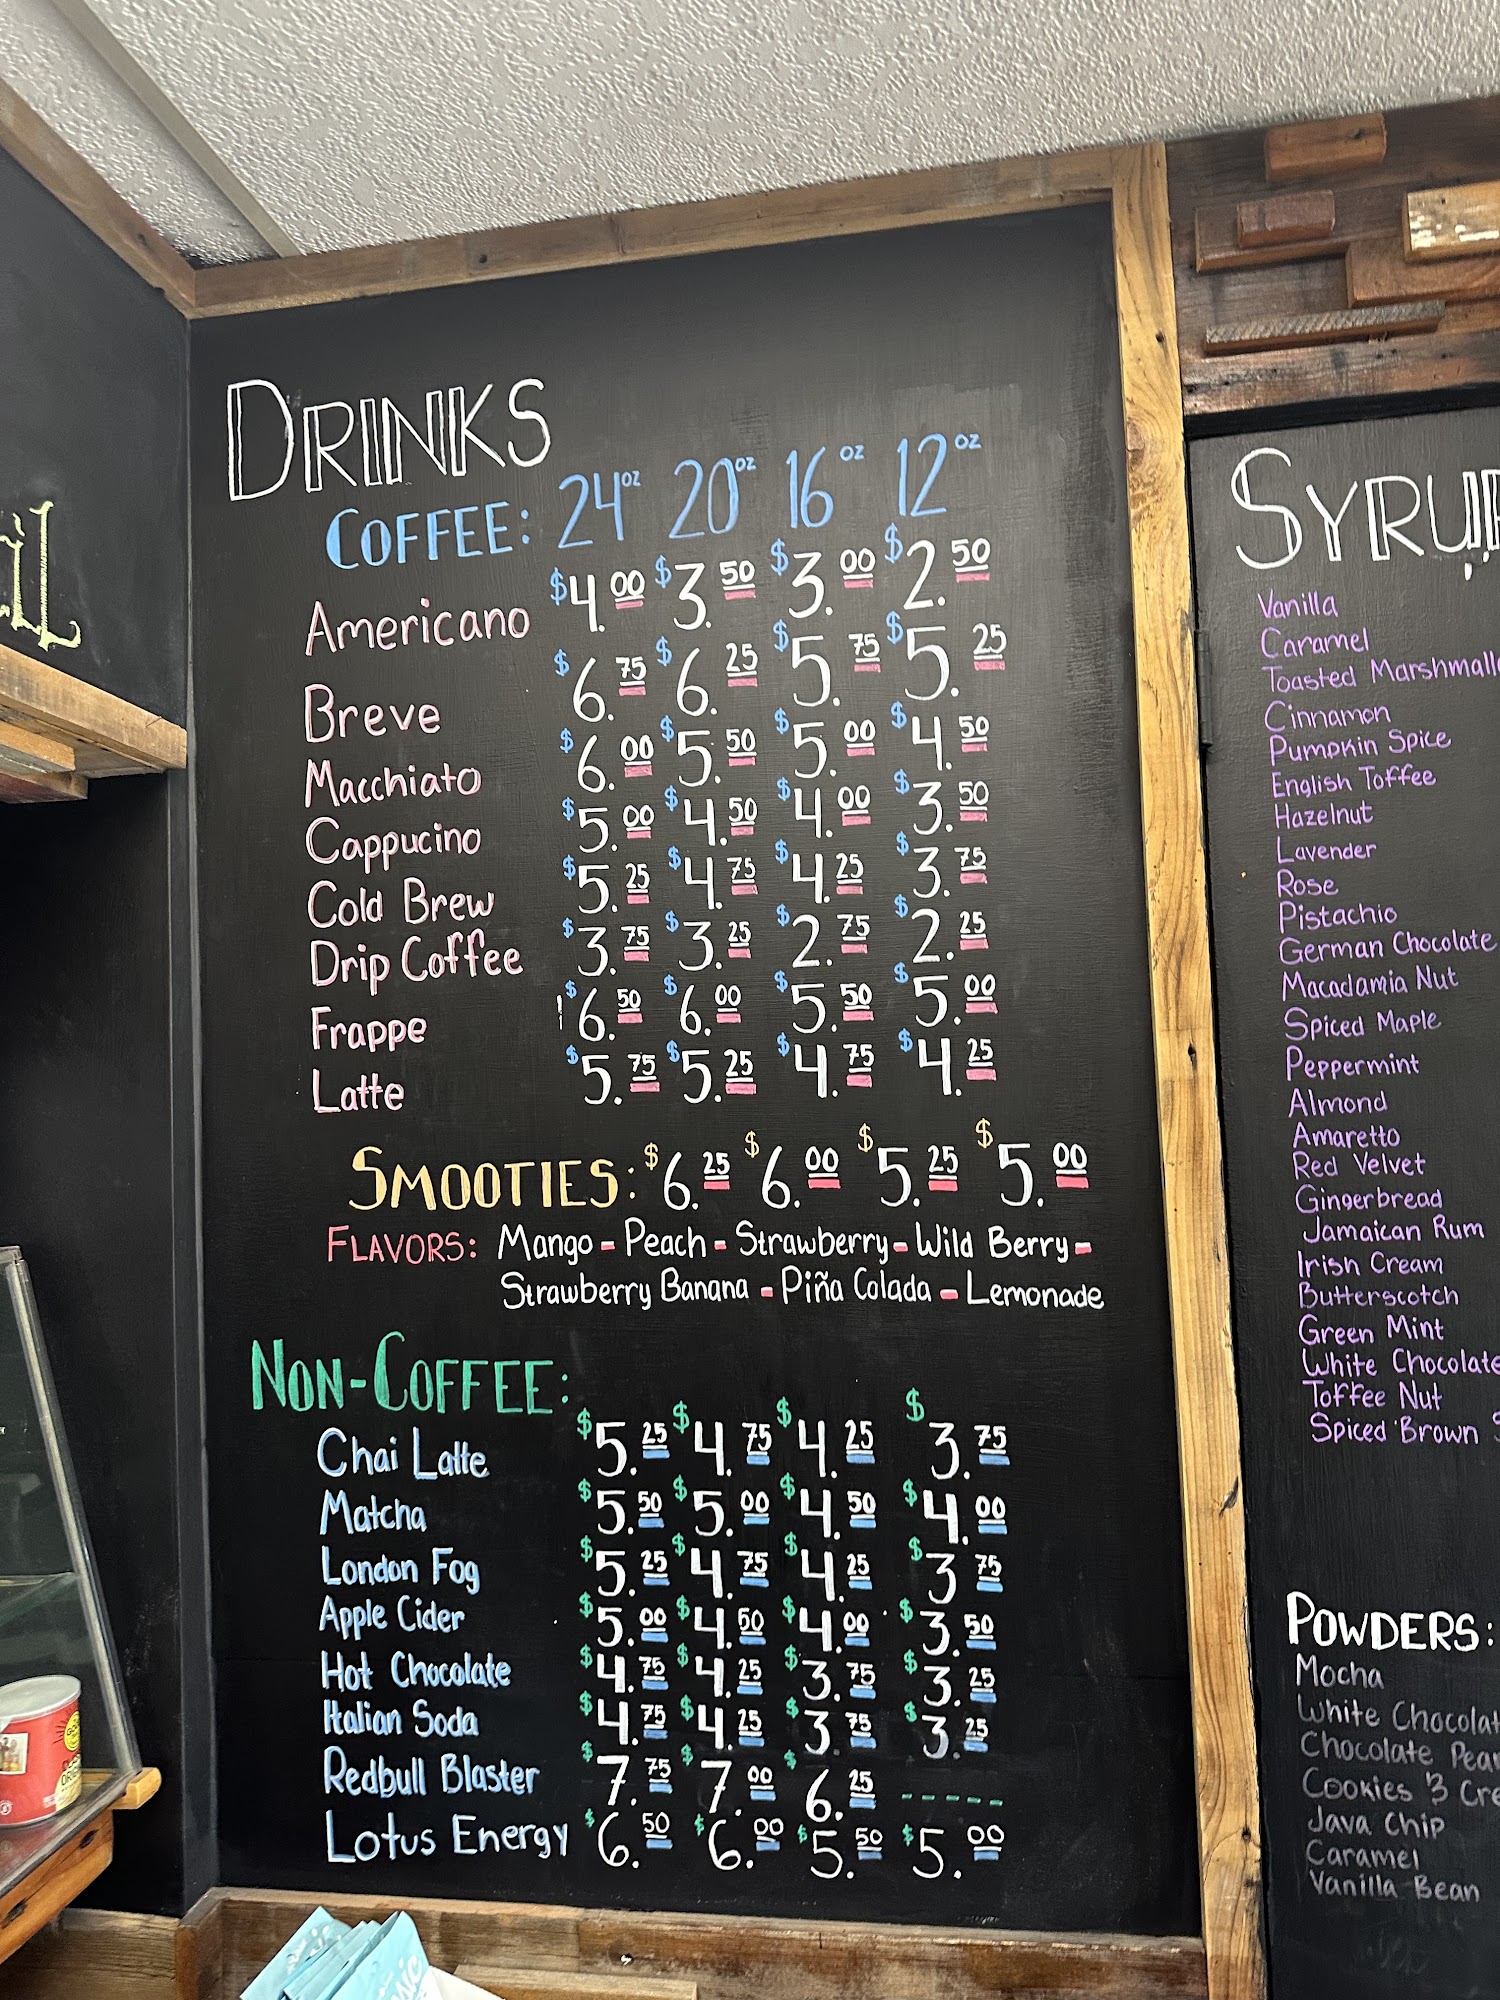 DRINKS
COFFEE: 24oz 20oz 16oz 12oz
Americano $4.00 $3.50 $3.00 $2.50
Breve $6.75 $6.25 $5.75 $5.25
Macchiato $6.00 $5.50 $5.00 $4.50
Cappucino $5.00 $4.50 $4.00 $3.50
Cold Brew $5.25 $4.75 $4.25 $3.75
Drip Coffee $3.75 $3.25 $2.75 $2.25
Frappe $6.50 $6.00 $5.50 $5.00
Latte $5.75 $5.25 $4.75 $4.25
SMOOTIES: $6.25 $6.00 $5.25 $5.00
FLAVORS: Mango - Peach - Strawberry - Wild Berry -
Strawberry Banana - Piña Colada - Lemonade
NON-COFFEE:
Chai Latte $5.25 $4.75 $4.25 $3.75
Matcha $5.50 $5.00 $4.50 $4.00
London Fog $5.25 $4.75 $4.25 $3 75
Apple Cider $5.00 $4.50 $4.00 $3.50
Hot Chocolate $4.75 $4.25 $3.75 $3.25
Italian Soda $4.75 $4.25 $3.75 $3.25
Redbull Blaster $7.75 $7.00 $6.25 -----
Lotus Energy $6.50 $6.00 $5.50 $5.00
SYRUP
Vanilla
Caramel
Toasted Marshmall
Cinnamon
Pumpkin Spice
English Toffee
Hazelnut
Lavender
Rose
Pistachio
German Chocolate
Macadamia Nut
Spiced Maple
Peppermint
Almond
Amaretto
Red Velvet
Gingerbread
Jamaican Rum
Irish Cream
Butterscotch
Green Mint
White Chocolate
Toffee Nut
Spiced Brown S
POWDERS:
Mocha
White Chocolat
Chocolate Pea
Cookies & Cre
Java Chip
Caramel
Vanilla Bean